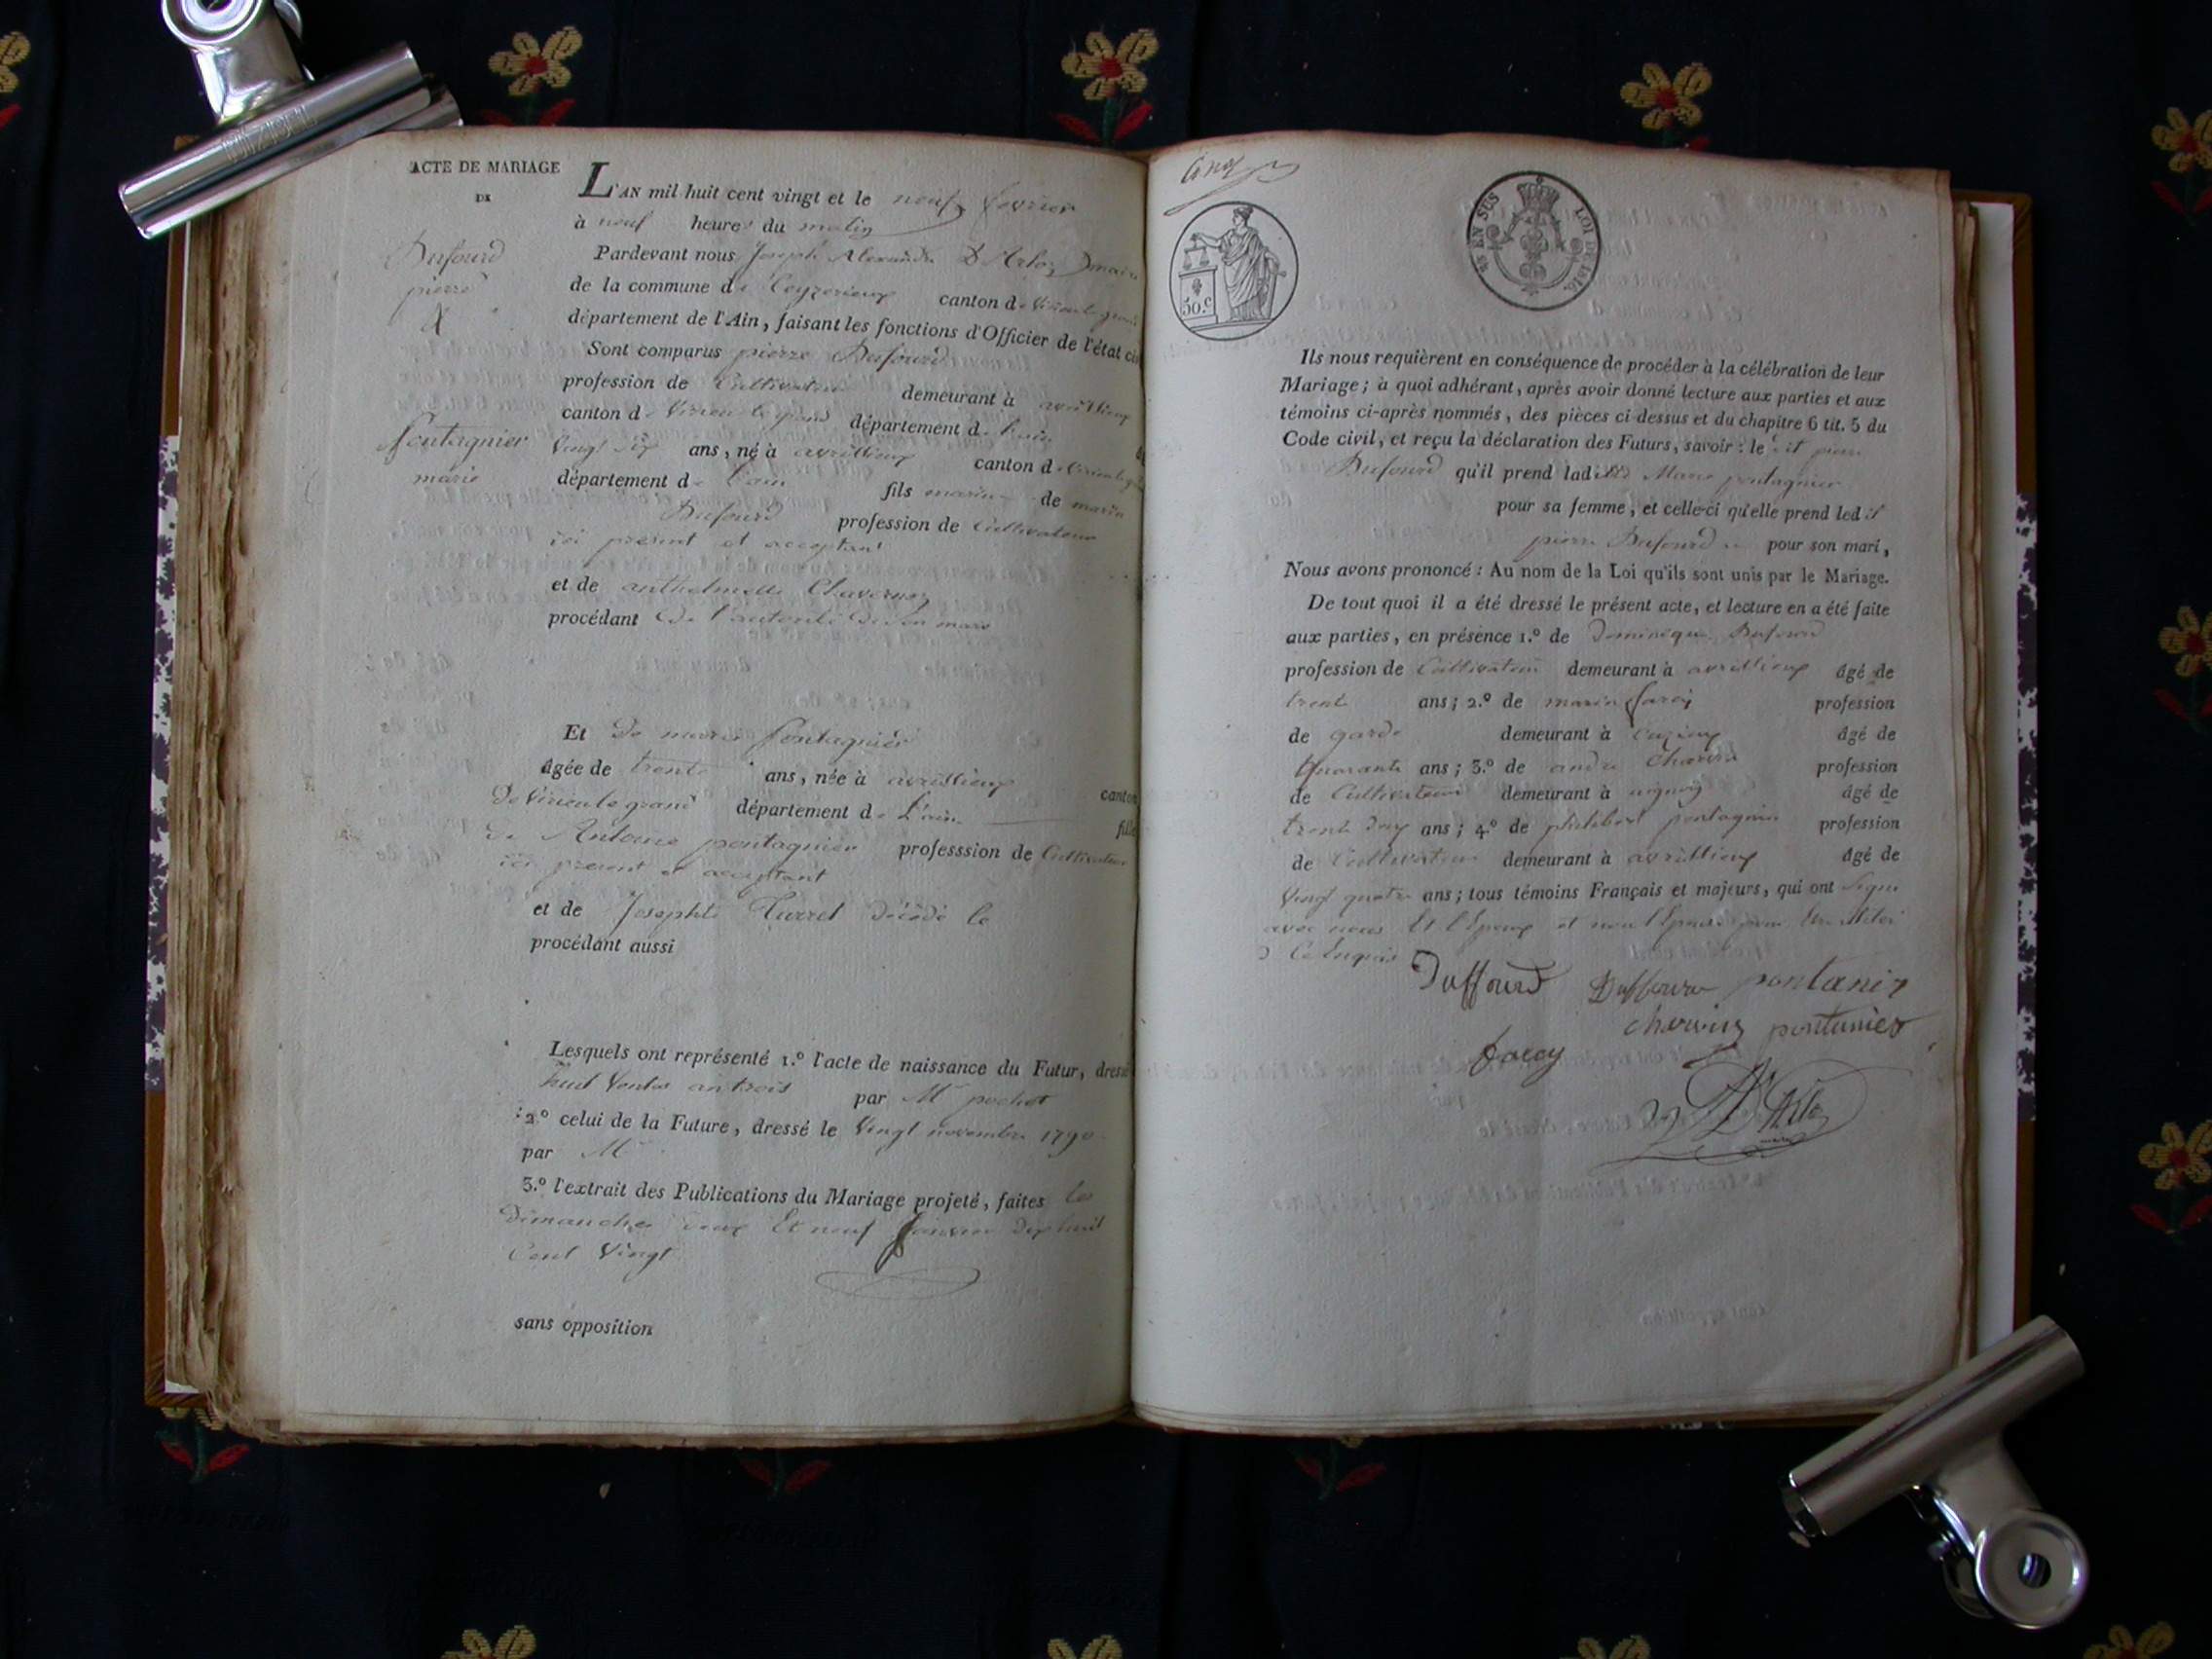 ACTE DE MARIAGE
DE
Dufourd
pierre
&
pontagnier
marie
L'AN mil huit cent vingt et le neuf fevrier
à neuf heures du matin
Pardevant nous Joseph Alexandre D'Arloz maire
de la commune de Ceyzerieux canton de Virieu le grand
département de l'Ain, faisant les fonctions d'Officier de l'état ci
Sont comparus pierre Dufourd
profession de Cultivateur demeurant à avrillieux
canton de Virieu le grand département de l'ain
vingt six ans, né à avrillieux canton de Virieu le
département de l'ain fils de marin
Dufourd profession de Cultivateur
ici present et acceptant
et de anthelmette Chavernoz
procédant de l'autorité de son
Et de marie pontagnier
âgée de trente ans, née à avrillieux canton
de Virieu le grand département de L'ain fille
de Antoine pontagnier professsion de Cultivateur
ici present et acceptant
et de Josephte Curret décédé le
procédant aussi
Lesquels ont représenté 1.º l'acte de naissance du Futur, dressé
huit Ventos an trois par Mr pochet
2º celui de la Future, dressé le Vingt novembre 1790
par Mr
3.º l'extrait des Publications du Mariage projeté, faites les
Dimanches deux Et neuf Janvier dix huit
Cent Vingt
sans opposition
Cinq
50.c
EN SUS LOI DE 1816.
Ils nous requièrent en conséquence de procéder à la célébration de leur
Mariage; à quoi adhérant, après avoir donné lecture aux parties et aux
témoins ci-après nommés, des pièces ci-dessus et du chapitre 6 tit. 5 du
Code civil, et reçu la déclaration des Futurs, savoir: le dit pierre
Dufourd qu'il prend ladite Marie pontagnier
pour sa femme, et celle-ci qu'elle prend ledit
pierre Dufourd pour son mari,
Nous avons prononcé: Au nom de la Loi qu'ils sont unis par le Mariage.
De tout quoi il a été dressé le présent acte, et lecture en a été faite
aux parties, en présence 1.º de Dominique Dufourd
profession de Cultivateur demeurant à avrillieux âgé de
trente ans; 2.º de marin farcy profession
de garde demeurant à âgé de
Quarante ans; 3.º de andré profession
de Cultivateur demeurant à âgé de
trente deux ans; 4.º de philibert pontagnier profession
de Cultivateur demeurant à avrillieux âgé de
Vingt quatre ans; tous témoins Français et majeurs, qui ont signé
avec nous Et l'Epoux et non l'Epouse pour
de ce Enquis
Duffourd Duffourd pontanier
charvin pontanier
farcy
D'Arloz
maire